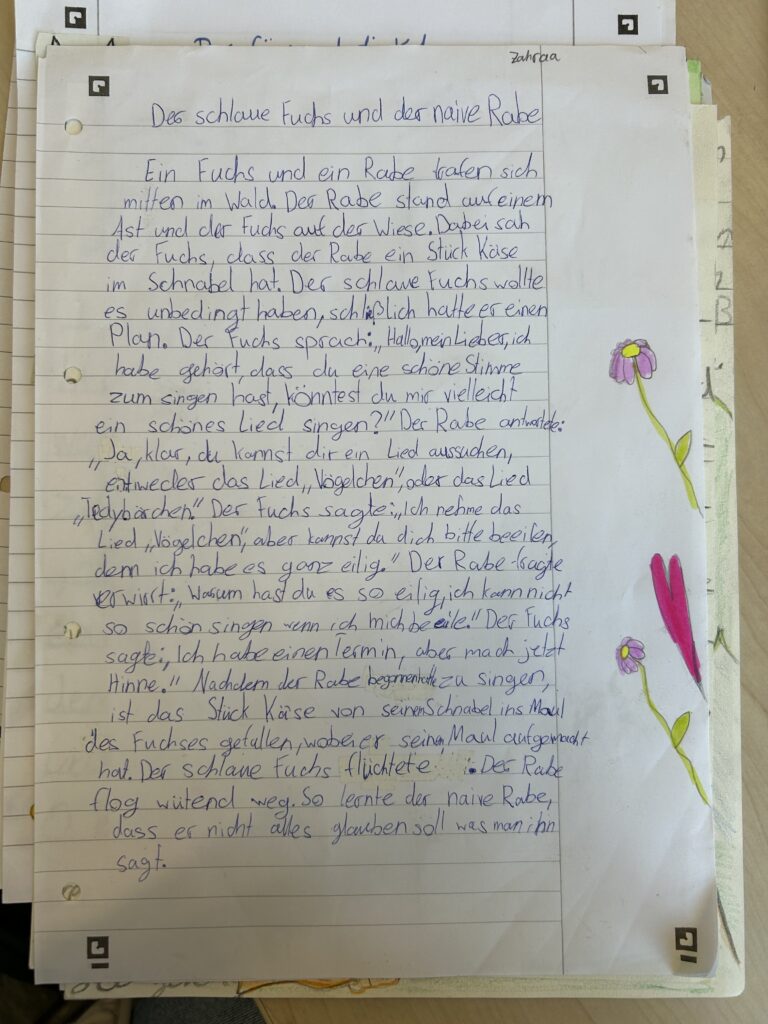 Zahraa
Der schlaue Fuchs und der naive Rabe
Ein Fuchs und ein Rabe trafen sich
mitten im Wald. Der Rabe stand auf einem
Ast und der Fuchs auf der Wiese. Dabei sah
der Fuchs, dass der Rabe ein Stück Käse
im Schnabel hat. Der schlaue Fuchs wollte
es unbedingt haben, schlißlich hatte er einen
Plan. Der Fuchs sprach: „Hallo, mein Lieber, ich
habe gehört, dass du eine schöne Stimme
zum singen hast, könntest du mir vielleicht
ein schönes Lied singen?" Der Rabe antwortete:
„Ja, klar, du kannst dir ein Lied aussuchen,
entweder das Lied „Vögelchen", oder das Lied
„Tedybärchen." Der Fuchs sagte: „Ich nehme das
Lied „Vögelchen", aber kannst da dich bitte beeilen,
denn ich habe es ganz eilig." Der Rabe fragte
verwirrt: „Warum hast du es so eilig, ich kann nicht
so schön singen wenn ich mich beeile." Der Fuchs
sagte: „Ich habe einen Termin, aber mach jetzt
Hinne." Nachdem der Rabe begonnen hatte zu singen,
ist das Stück Käse von seinen Schnabel ins Maul
des Fuchses gefallen, wobei er seinen Maul aufgemacht
hat. Der schlaue Fuchs flüchtete. Der Rabe
flog wütend weg. So lernte der naive Rabe,
dass er nicht alles glauben soll was man ihn
sagt.